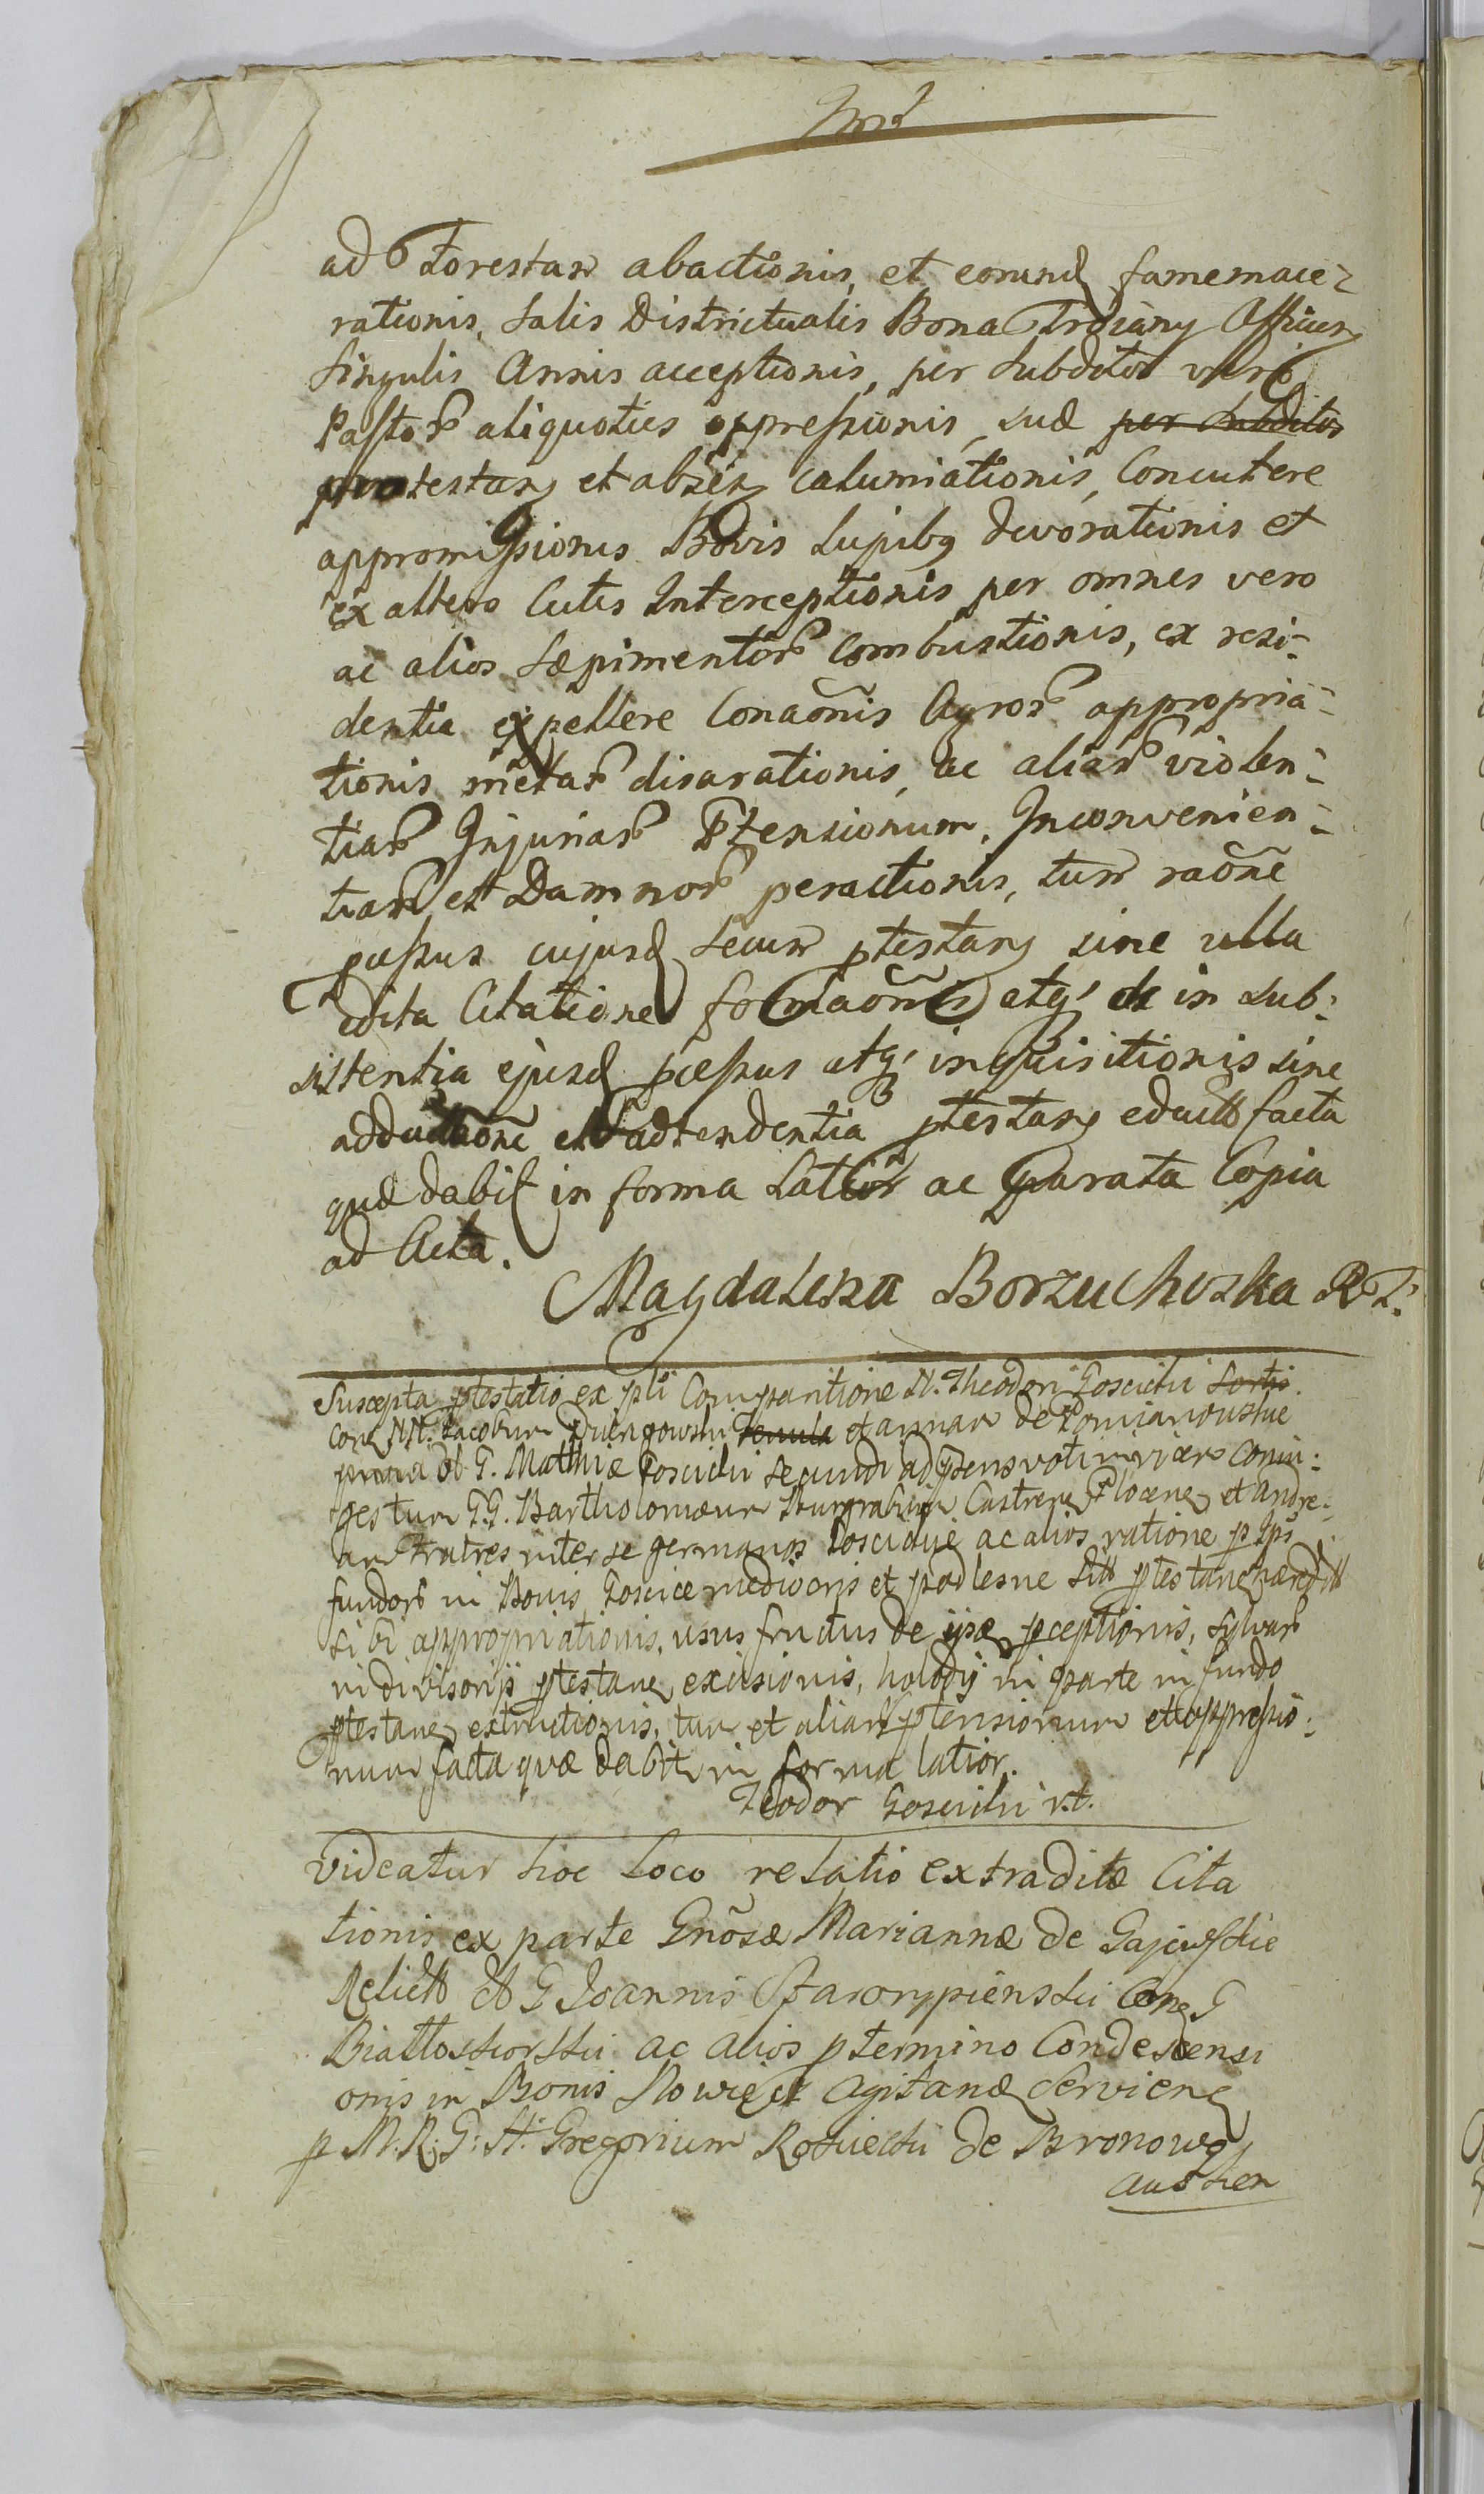 ad Forestam abactionis, et eorund famemace-
rationis, Salis Districtualis Bona Trojany
Singulis Annis acceptionis, per Subditos vero
Pastor aliquoties oppressionis, suæ per Subditos
protestan et absen calumiationis, Concutere
appromissionis Bovis Lupibq devorationis et
ex altero Cutis Interceptionis per omnes vero
ac alios Sæpimentor Combustionis, ex resi-
dentia expellere Conaõnis Agror appropria-
tionis metar disarationis, ac aliar violen-
tiar Injuriar Ptensionum, Inconvenien-
tiar et Damnor peractionis, tum raõne
pcessus cujusd secum ptestan sine ulla
edita Citatione formaõnis atq in sub-
sistentia ejusd pcessus atq inquisitionis sine
adductaõne et adtendentia ptestan educto facta
quæ dabit in forma Latior ac parata Copia
ad Acta.
Magdalena Borzuchoska
Suscepta ptestatio ex pti Comparitione N. Theodori Goscicki Sortis
Con NN. Jacobum et annam de
G. Matthiæ Goscicki secundi voti Coniu-
ges tum G.G. Bartholomæum Burgrabium Castren Plocen et Andre-
am Fratres inter se germanos Goscickie ac alios ratione
fundor in Bonis Goscice mediocris et podlesne ptestan
sibi appropriationis, usus fructus de pceptionis, sylvar
indivisorij ptestan excisionis, in parte in fundo
ptestan extructionis, tum et aliar ptensionum et oppressio-
num facta quæ dabit in forma latior.
Teodor Goscicki
Videatur hoc Loco relatio extraditæ Cita
tionis ex parte Gnõsæ Mariannæ de Gajewskie
Relict G Joannis Starorypienski Con G
Białloskorski ac alios p termino Condescensi
onis in Bonis agitanæ Servien
p M.R.G. Gregorium de Bronowo